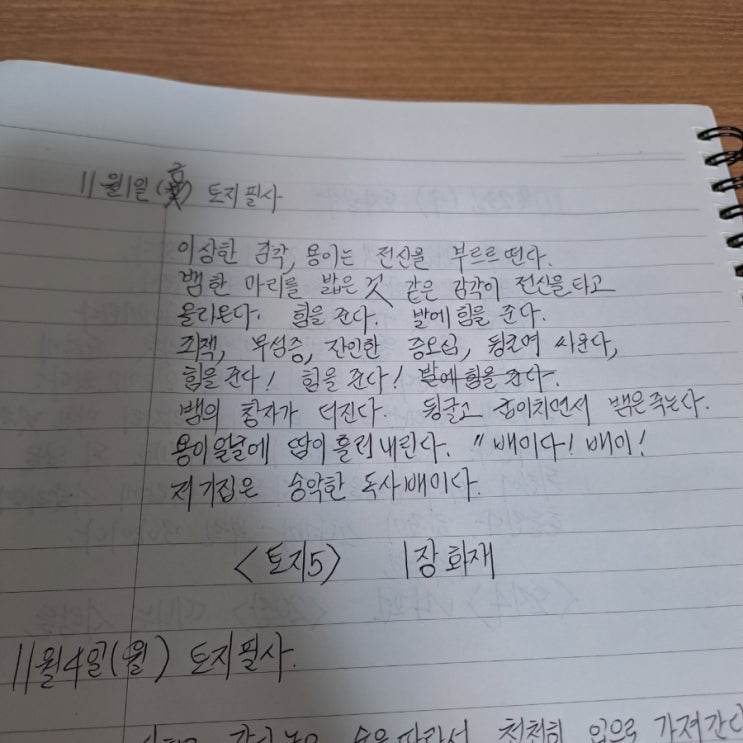 11월1일 (금) 토지필사
이상한 감각, 용이는 전신을 부르르 떤다.
뱀 한 마리를 밟은 것 같은 감각이 전신을 타고
올라온다. 힘을 준다. 발에 힘을 준다.
죄책, 무섬증, 잔인한 증오심, 뒹굴며 싸운다,
힘을 준다! 힘을 준다! 발에 힘을 준다.
뱀의 창자가 터진다. 뒹굴고 굽이치면서 뱀은 죽는다.
용이 얼굴에 땀이 흘러내린다. "배이다! 배이!
저 기집은 숭악한 독사배이다.
<토지5> 1장 화재
11월4일(월) 토지필사.
천천히 입으로 가져간다